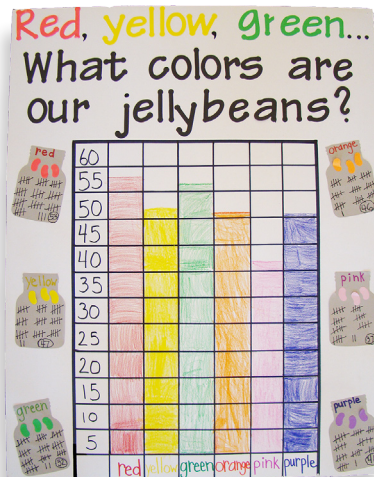 Red, yellow, green...
What colors are
our jellybeans?
60
55
50
45
40
35
30
25
20
15
10
5
red yellow green orange pink purple
red
yellow
47
green
52
orange
46
pink
purple